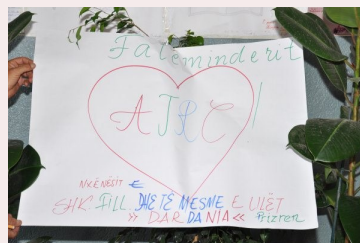 Faleminderit
AJRC!
NXËNËSIT E
SHK. FILL. DHE TË MESME E ULËT
» DARDANIA « Prizren